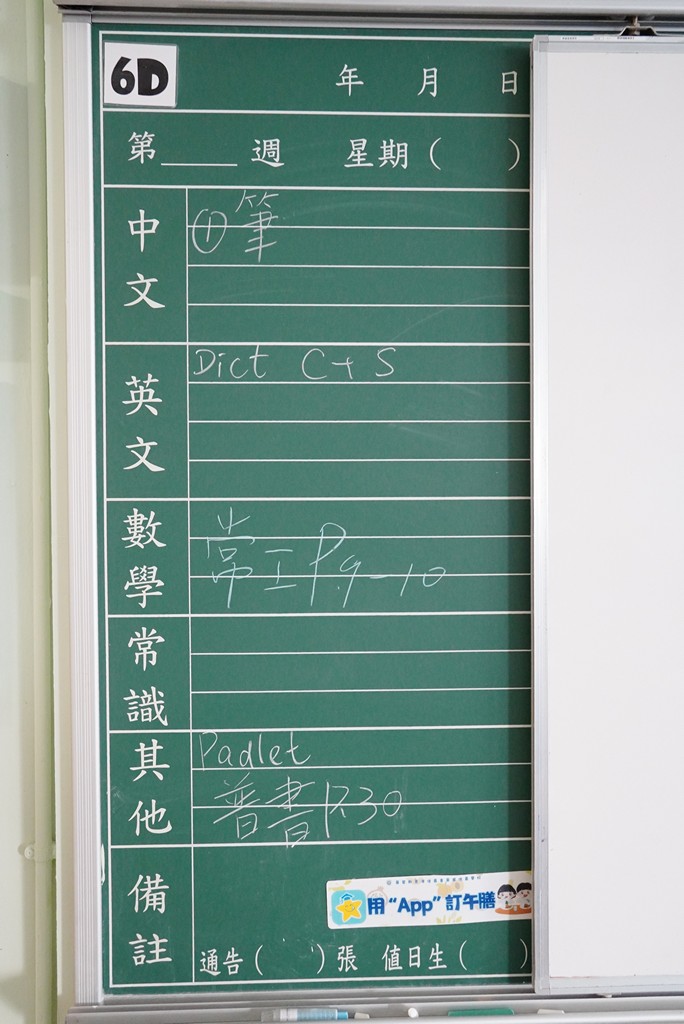 6D
年 月 日
第____週 星期( )
中文
①筆
英文
Dict C+S
數學
常工P.9-10
常識
其他
Padlet
普書P.30
備註
用 “App” 訂午膳
通告( )張 值日生( )